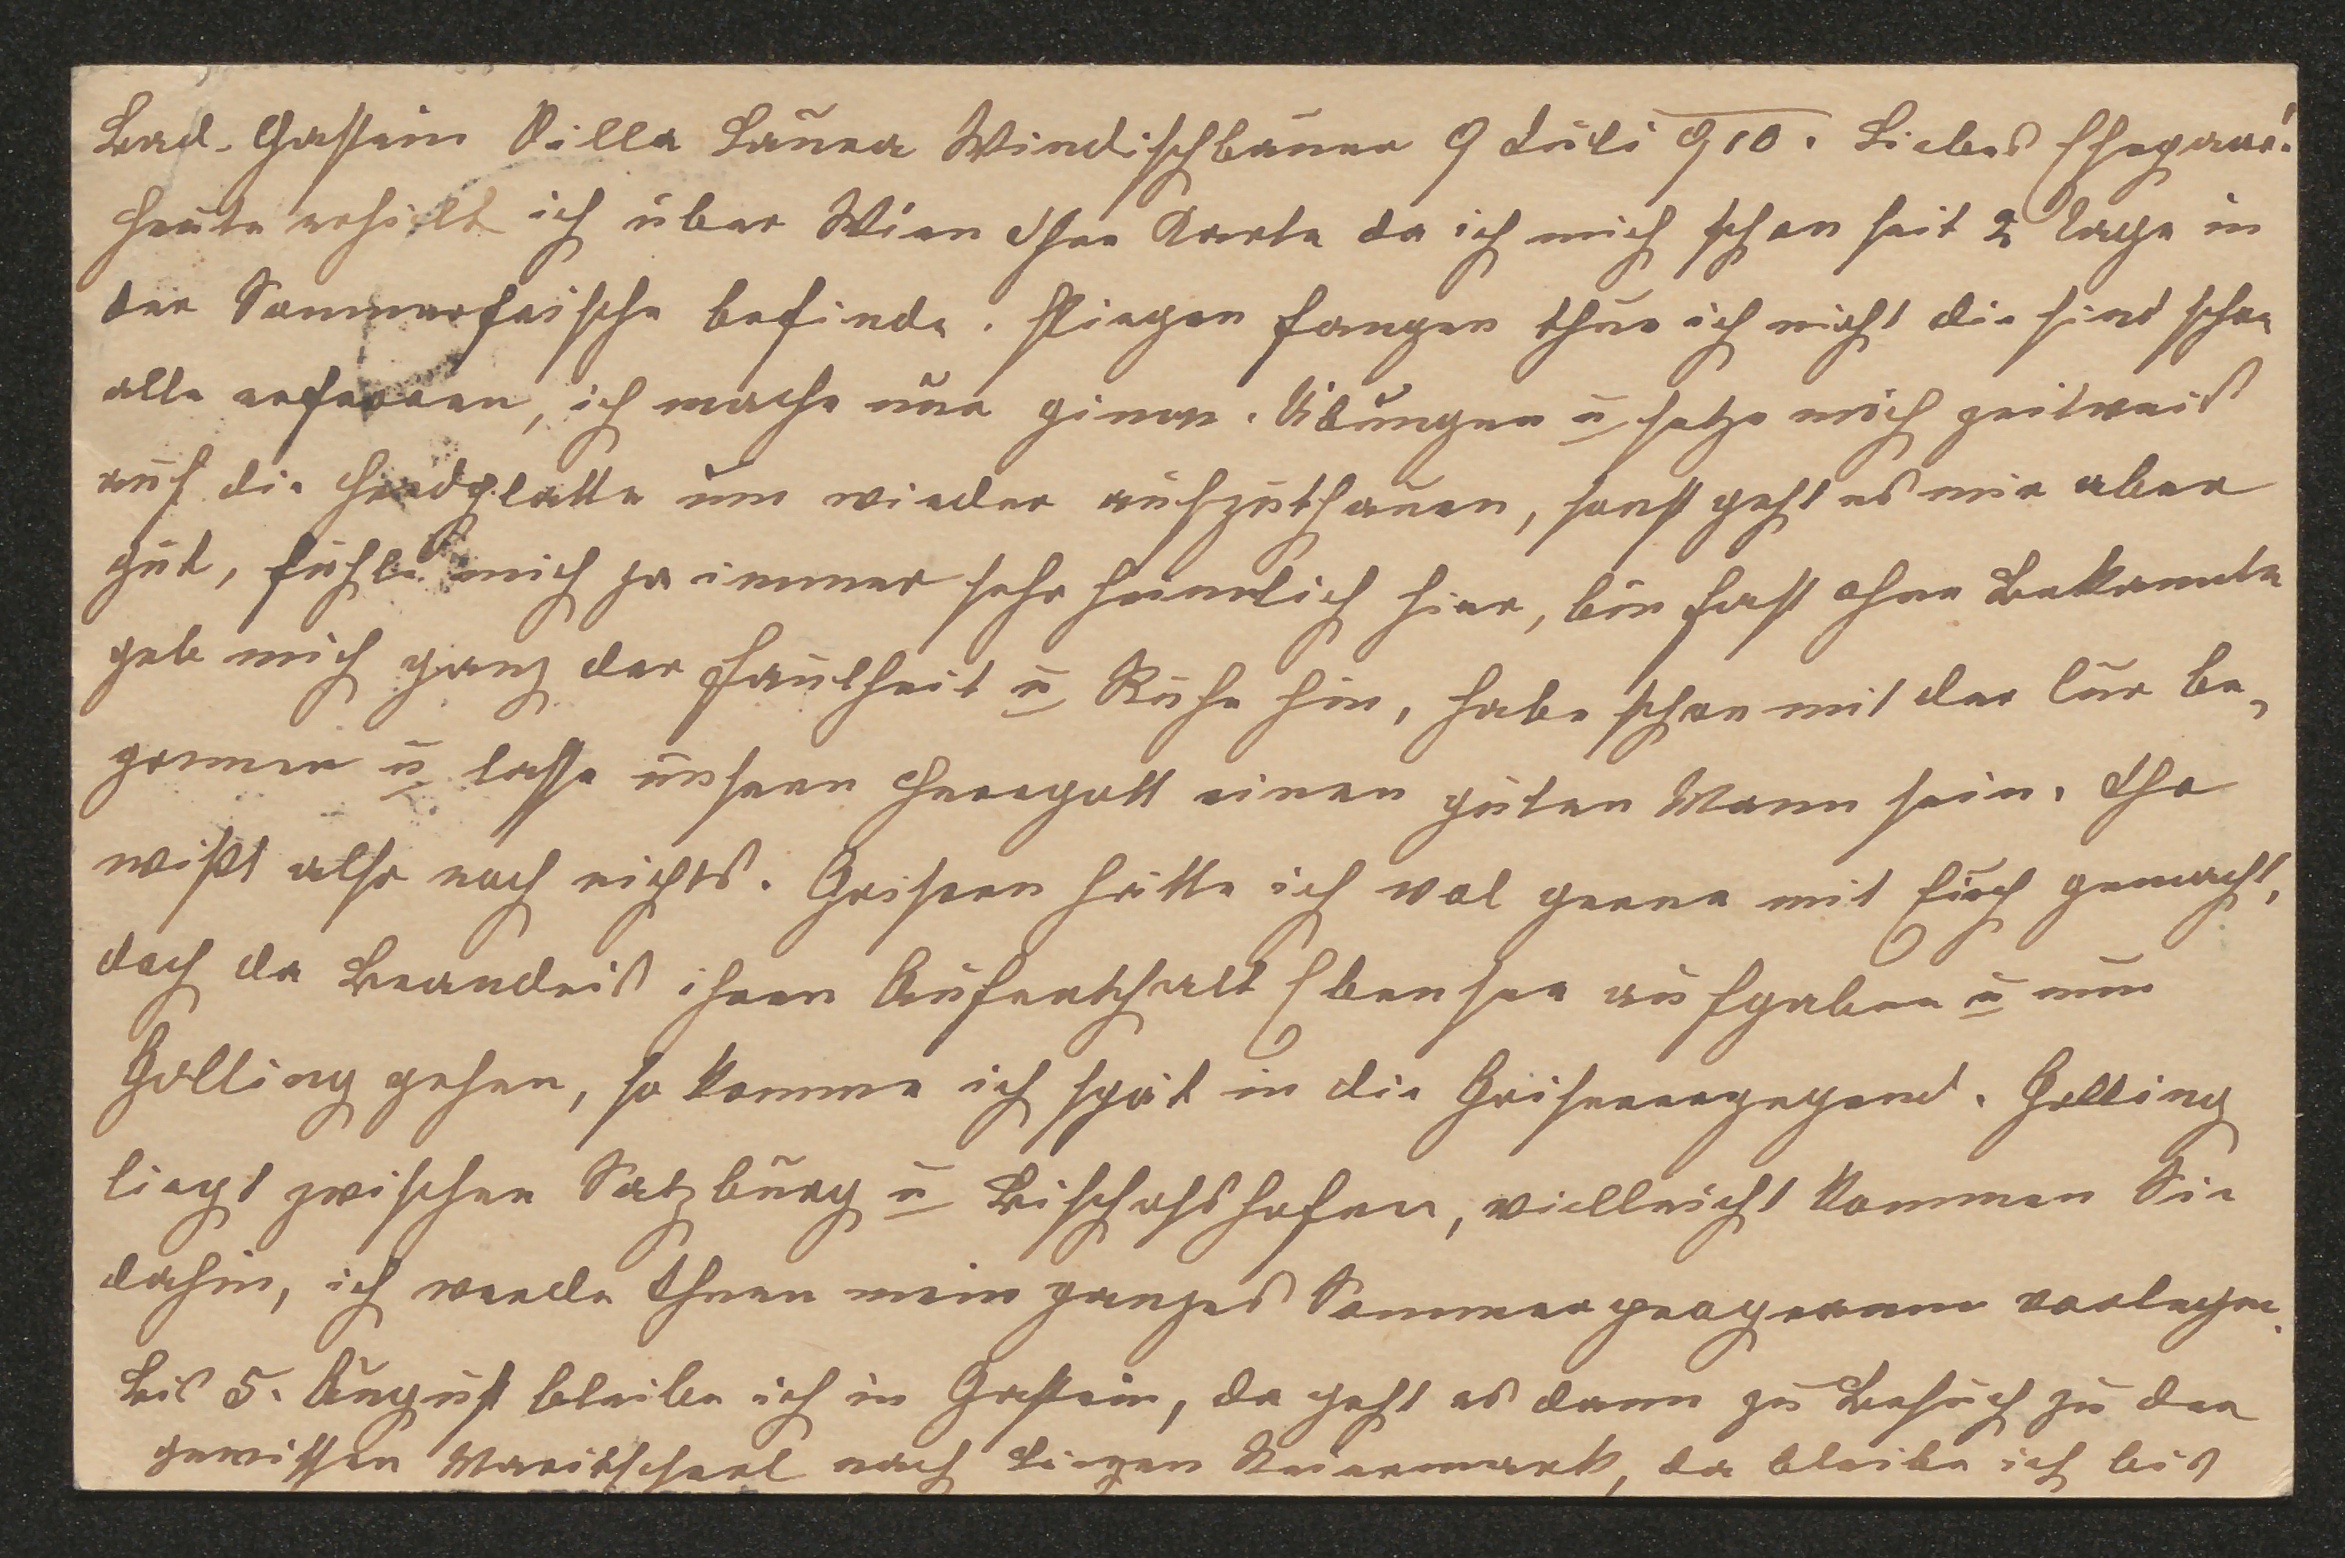 Bad-Gastein Villa Laura Windischbauer 9 Juli 910. Liebes Ehepaar!
Heute erhielt ich über Wien Ihre Karte da ich mich schon seit 2 Tage in
der Sommerfrische befinde. Fliegen fangen thue ich nicht die sind schon
alle erfroren, ich mache nur gimn. Übungen u setze mich zeitweis
auf die Herdplatte um wieder aufzuthauen, sonst geht es mir aber
gut, fühle mich ja immer sehr heimlich hier, bin fast ohne Bekannte
geb mich ganz der Faulheit u Ruhe hin, habe schon mit der Cur be¬
gonnen u lasse unsern Herrgott einen guten Mann sein. Ihr
wißt also noch nichts. Geisern hätte ich wol gerne mit Euch gemacht,
doch da Brandeis ihren Aufenthalt Ebensee aufgaben u nun
Golling gehen, so komme ich spät in die Geiserergegend. Golling
liegt zwischen Salzburg u Bischofshofen, vielleicht kommen Sie
dahin, ich werde Ihnen mein ganzes Sommerprogramm vorlegen.
Bis 5. August bleibe ich in Gastein, da geht es dann zu Besuch zu der
gewissen Maritscherl nach Liezen Steiermark, da bleibe ich bis